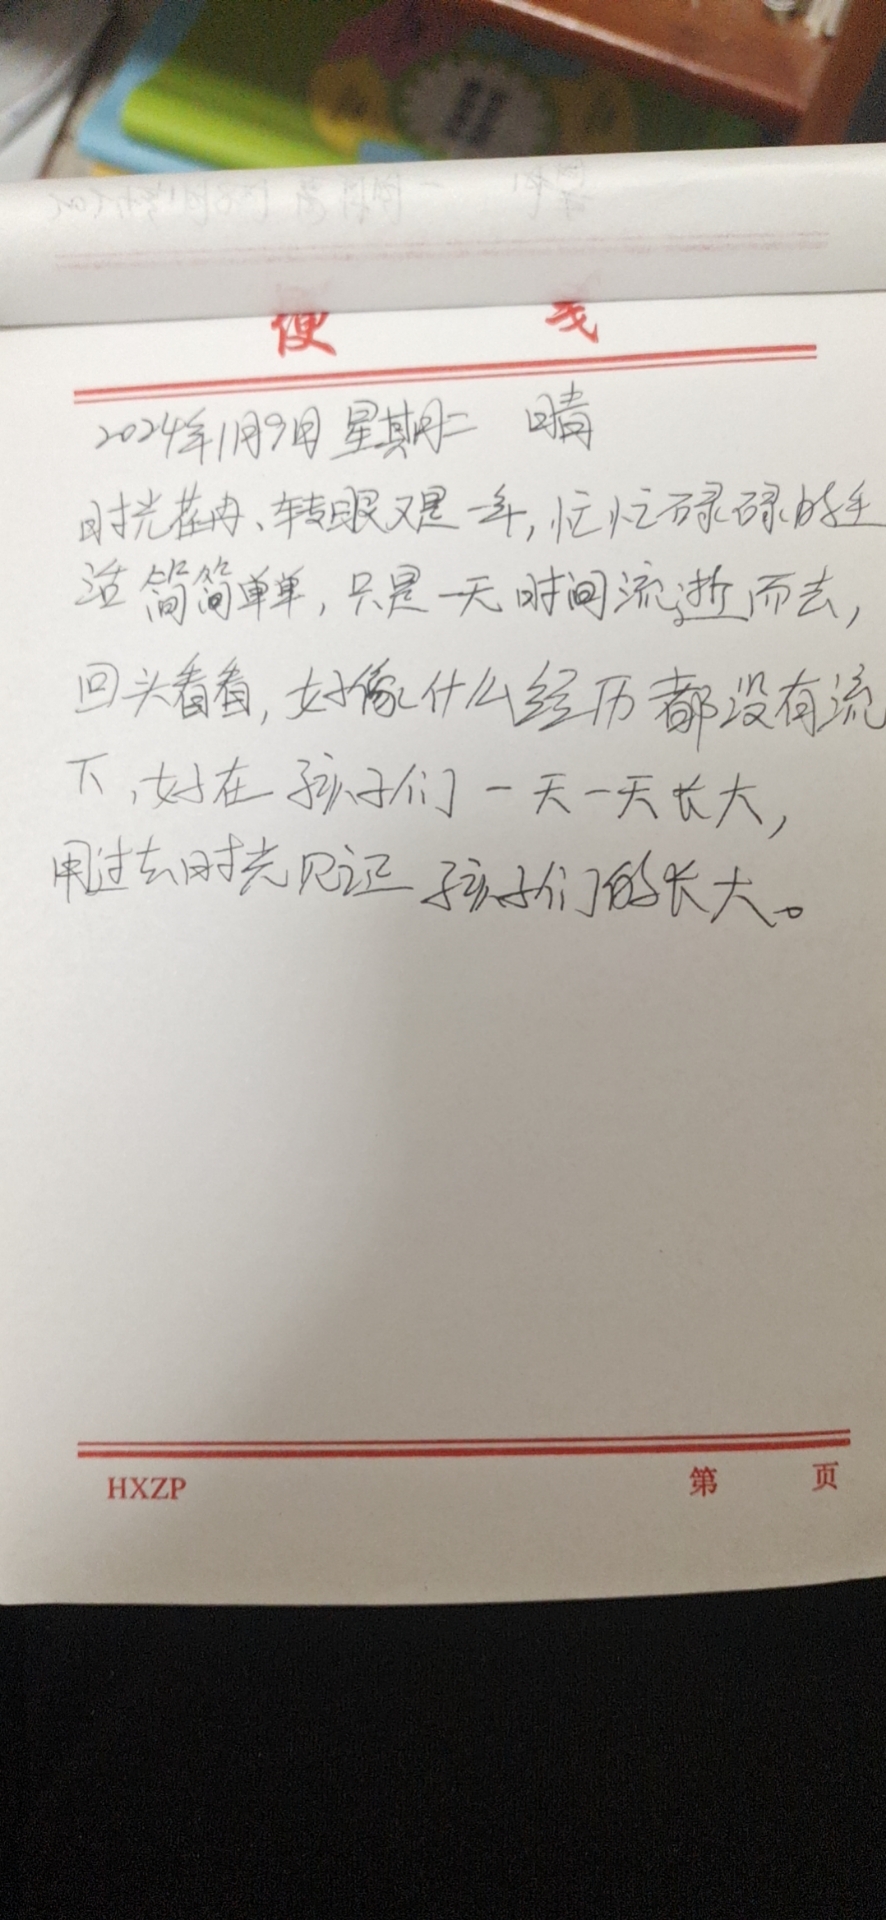 便 笺
2024年1月9日 星期二 晴
时光荏冉、转眼又是一年,忙忙碌碌的生
活简简单单,只是一天时间流逝而去,
回头看看,好像什么经历都没有流
下,好在孩子们一天一天长大,
用过去时光见证孩子们的长大。
HXZP 第 页